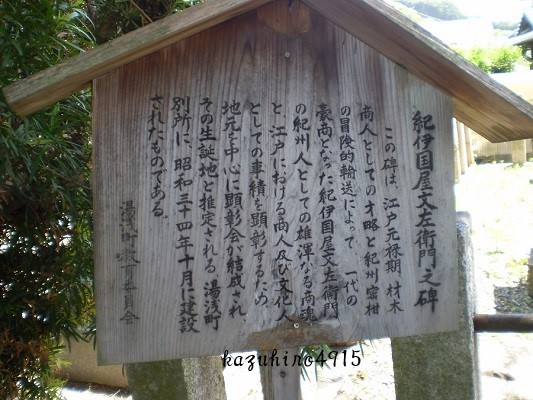 紀伊国屋文左衛門之碑
この碑は、江戸元禄期、材木
商人としての才略と紀州密柑
の冒険的輸送によって 一代の
豪商となった紀伊国屋文左衛門
の紀州人としての雄渾なる商魂
と、江戸における商人及び文化人
としての事績を顕彰するため、
地元を中心に顕彰会が結成され
その生誕地と推定される 湯浅町
別所に、昭和三十四年十月に建設
されたものである。
湯浅町教育委員会
kazuhiro4915